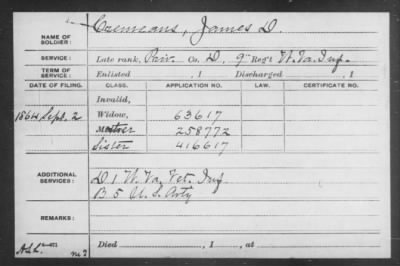 Cremeans, James D.
NAME OF SOLDIER:
SERVICE: Late rank, Priv. Co. D, 9" Reg't W. Va. Inf.
TERM OF SERVICE: Enlisted , 1 Discharged , 1
DATE OF FILING. CLASS. APPLICATION NO. LAW. CERTIFICATE NO.
Invalid,
1864 Sept. 2 Widow, 63617
Mother 258772
Sister 416617
ADDITIONAL SERVICES: D 1 W. Va. Vet. Inf
B 5 U. S. Arty
REMARKS:
Died , 1 , at